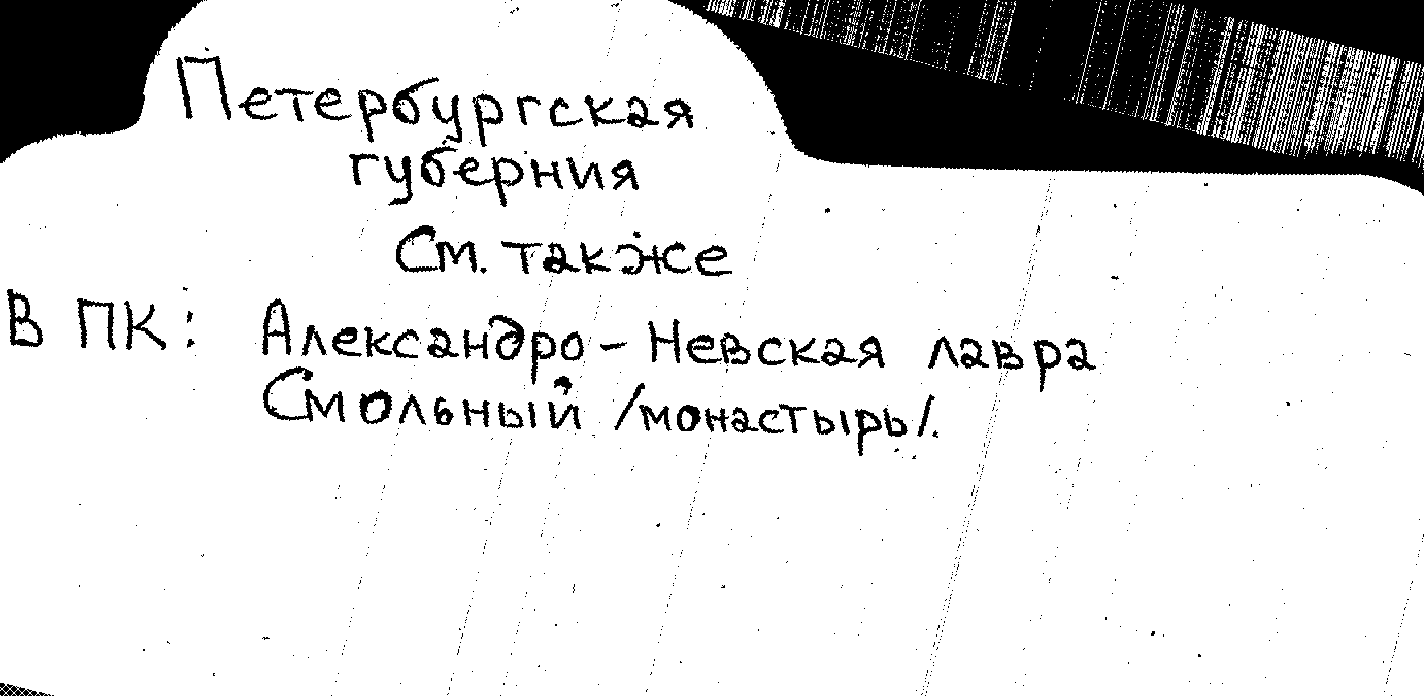 Петербургская
губерния
См. также
В ПК: Александро-Невская лавра
Смольный /монастырь/.